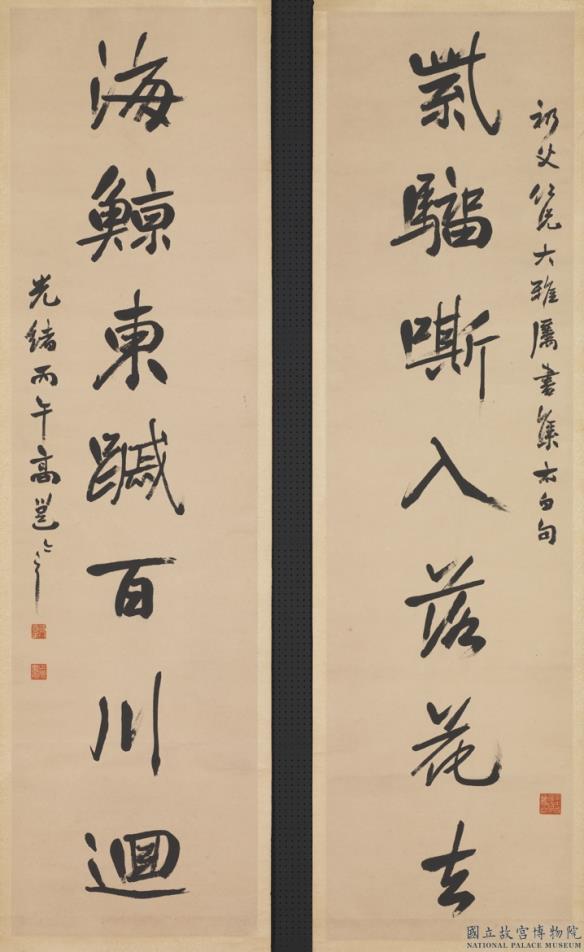 父仁兄大雅屬書集太白句
紫騮嘶入落花去
海鯨東蹙百川迴
光緒丙午高邕之
國立故宮博物院
NATIONAL PALACE MUSEUM